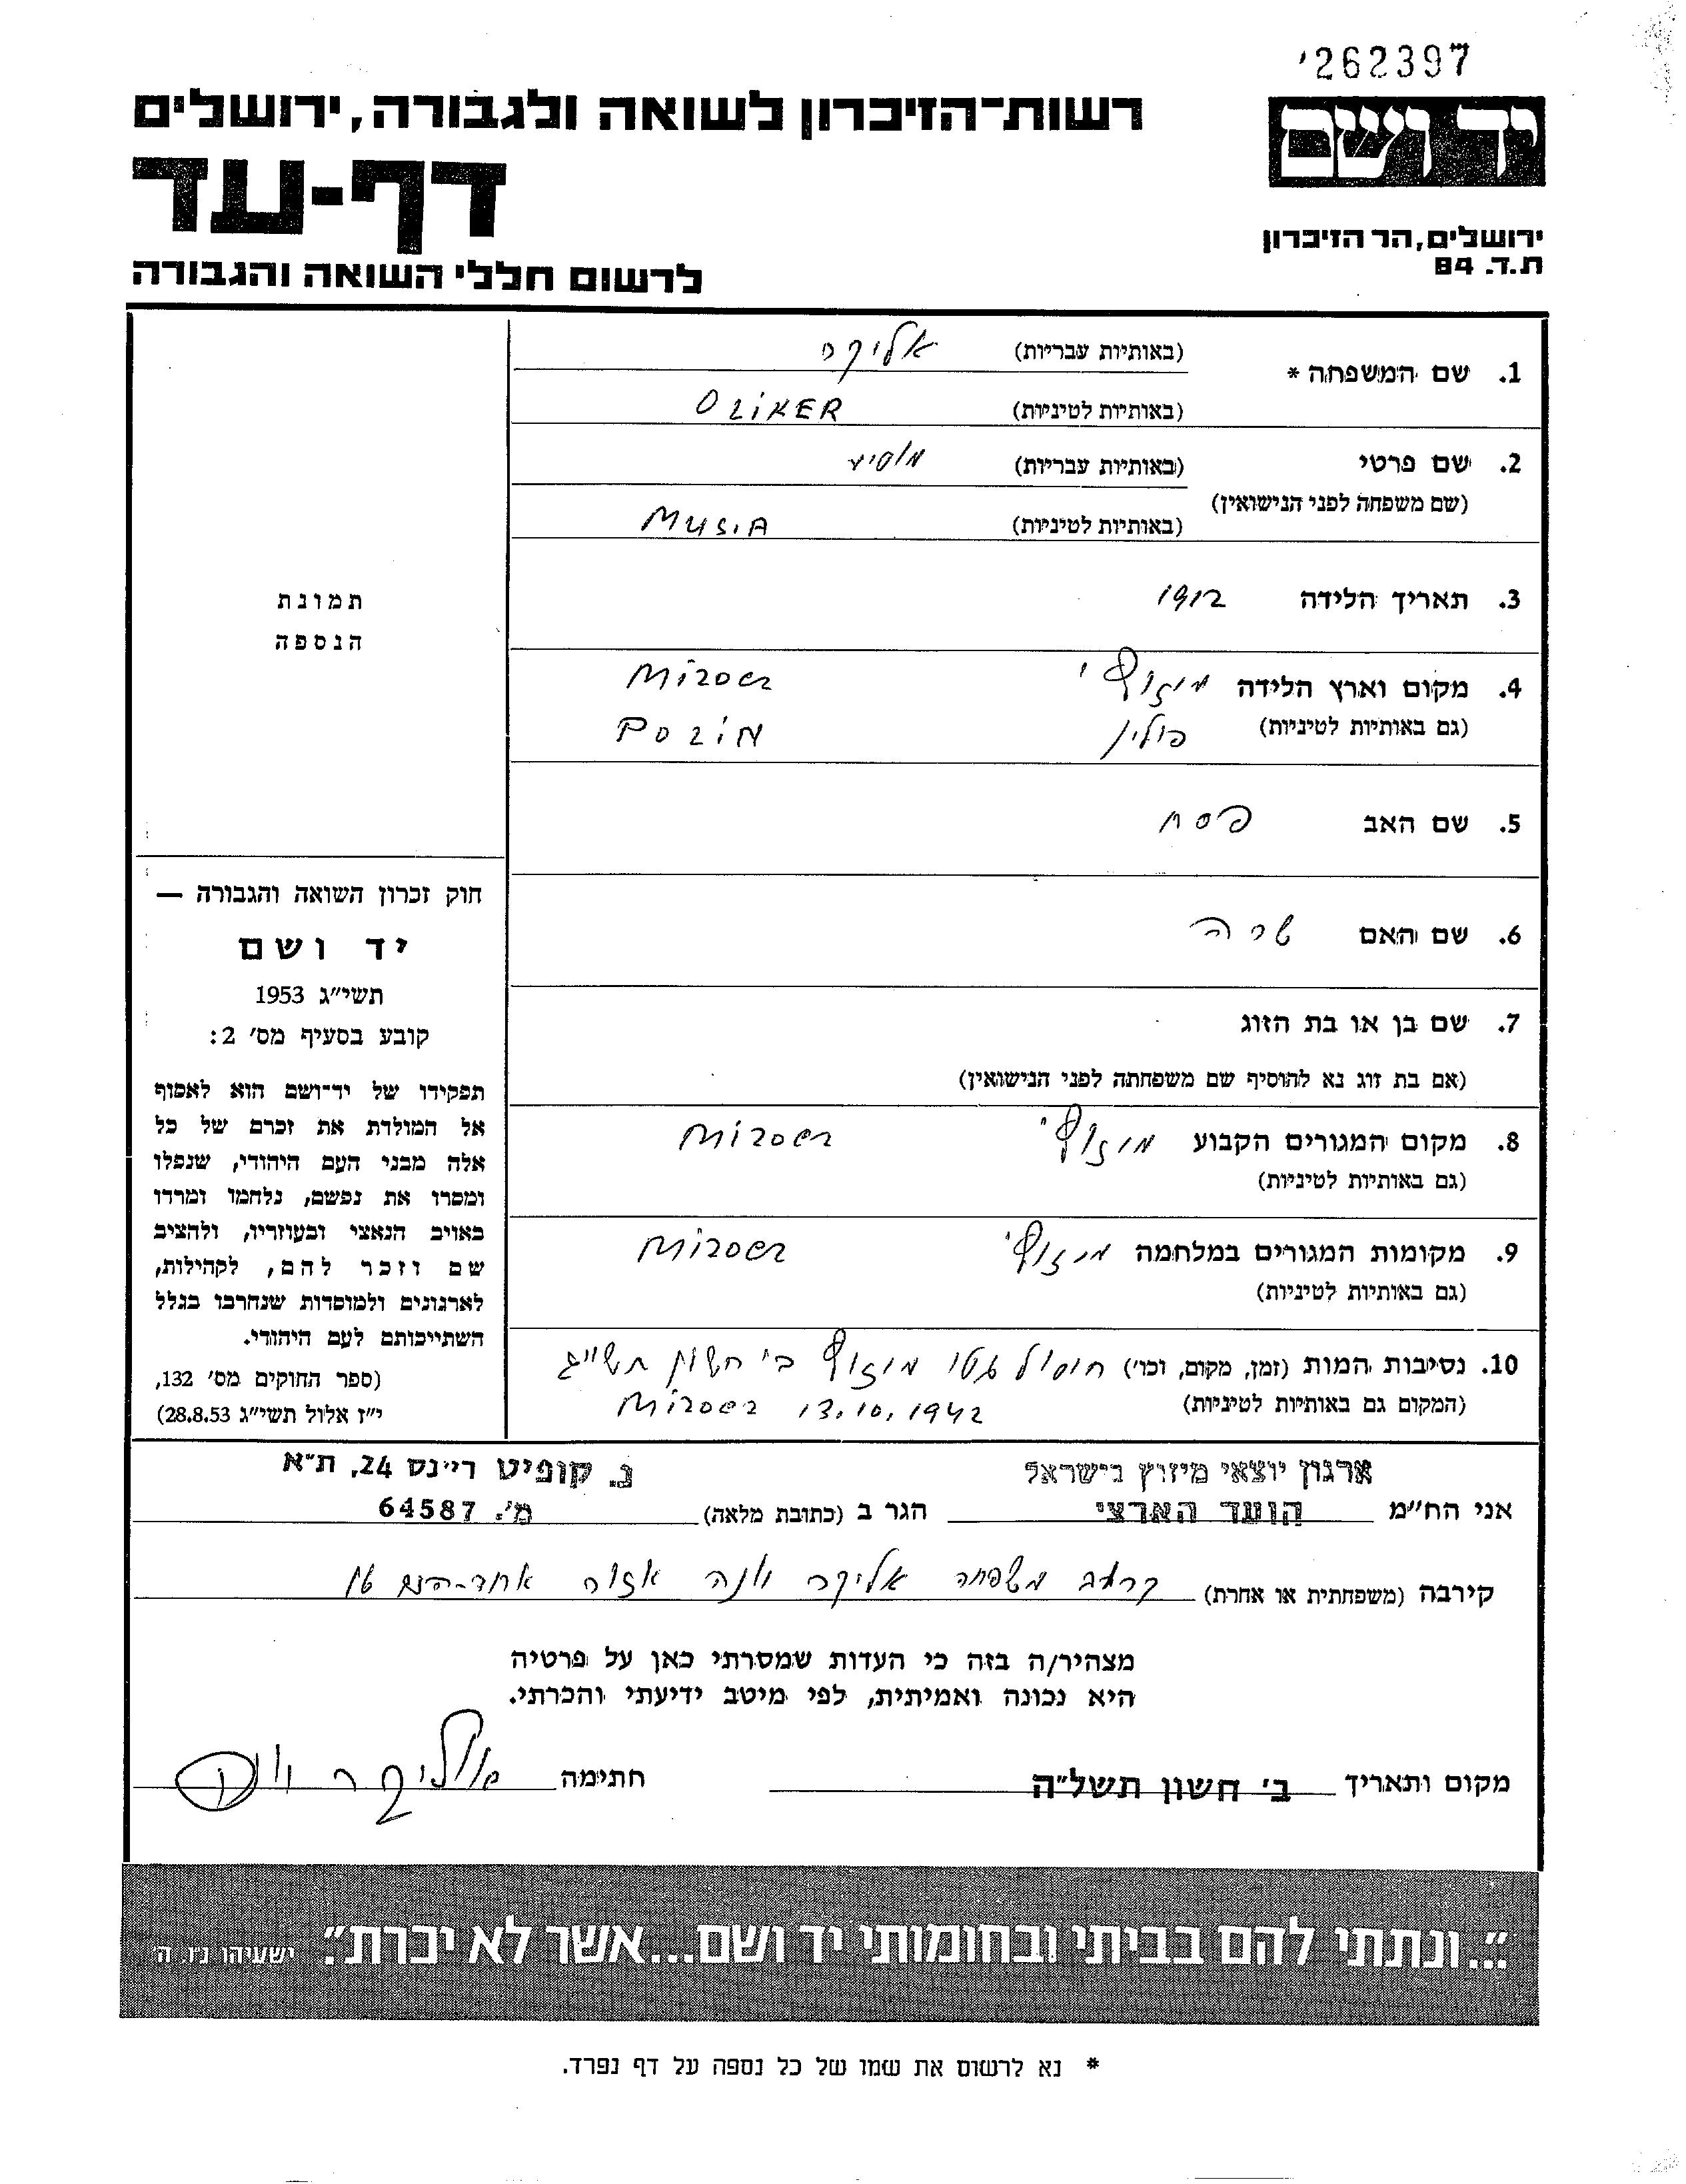 262397'
יד ושם
רשות־הזיכרון לשואה ולגבורה, ירושלים
דף-עד
ירושלים, הר הזיכרון
ת.ד. 84
לרשום חללי השואה והגבורה
1. שם המשפחה * (באותיות עבריות) אליקר
(באותיות לטיניות) OLiKER
2. שם פרטי (באותיות עבריות) מוסיע
(שם משפחה לפני הנישואין)
(באותיות לטיניות) MUSiA
3. תאריך הלידה 1912
4. מקום וארץ הלידה מיזוץ' Mizocz
(גם באותיות לטיניות) פולין POLiN
5. שם האב פסח
6. שם האם שרה
7. שם בן או בת הזוג
(אם בת זוג נא להוסיף שם משפחתה לפני הנישואין)
8. מקום המגורים הקבוע מיזוץ' Mizocz
(גם באותיות לטיניות)
9. מקומות המגורים במלחמה מיזוץ' Mizocz
(גם באותיות לטיניות)
10. נסיבות המות (זמן, מקום, וכו') חיסול גטו מיזוץ ב' חשון תש"ג
(המקום גם באותיות לטיניות) 13.10.1942 Mizocz
תמונת
הנספה
חוק זכרון השואה והגבורה —
יד ושם
תשי"ג 1953
קובע בסעיף מס' 2:
תפקידו של יד־ושם הוא לאסוף
אל המולדת את זכרם של כל
אלה מבני העם היהודי, שנפלו
ומסרו את נפשם, נלחמו ומרדו
באויב הנאצי ובעוזריו, ולהציב
שם וזכר להם, לקהילות,
לארגונים ולמוסדות שנחרבו בגלל
השתייכותם לעם היהודי.
(ספר החוקים מס' 132,
י"ז אלול תשי"ג 28.8.53)
ארגון יוצאי מיזוץ בישראל נ. קופיט ריינס 24, ת"א
אני הח"מ הועד הארצי הגר ב (כתובת מלאה) מ'. 64587
קירבה (משפחתית או אחרת) משפחה אליקר ונה אזור
מצהיר/ה בזה כי העדות שמסרתי כאן על פרטיה
היא נכונה ואמיתית, לפי מיטב ידיעתי והכרתי.
מקום ותאריך ב' חשון תשל"ה חתימה אוליקר
"...ונתתי להם בביתי ובחומותי יד ושם...אשר לא יכרת". ישעיהו נ"ו ה'
* נא לרשום את שמו של כל נספה על דף נפרד.